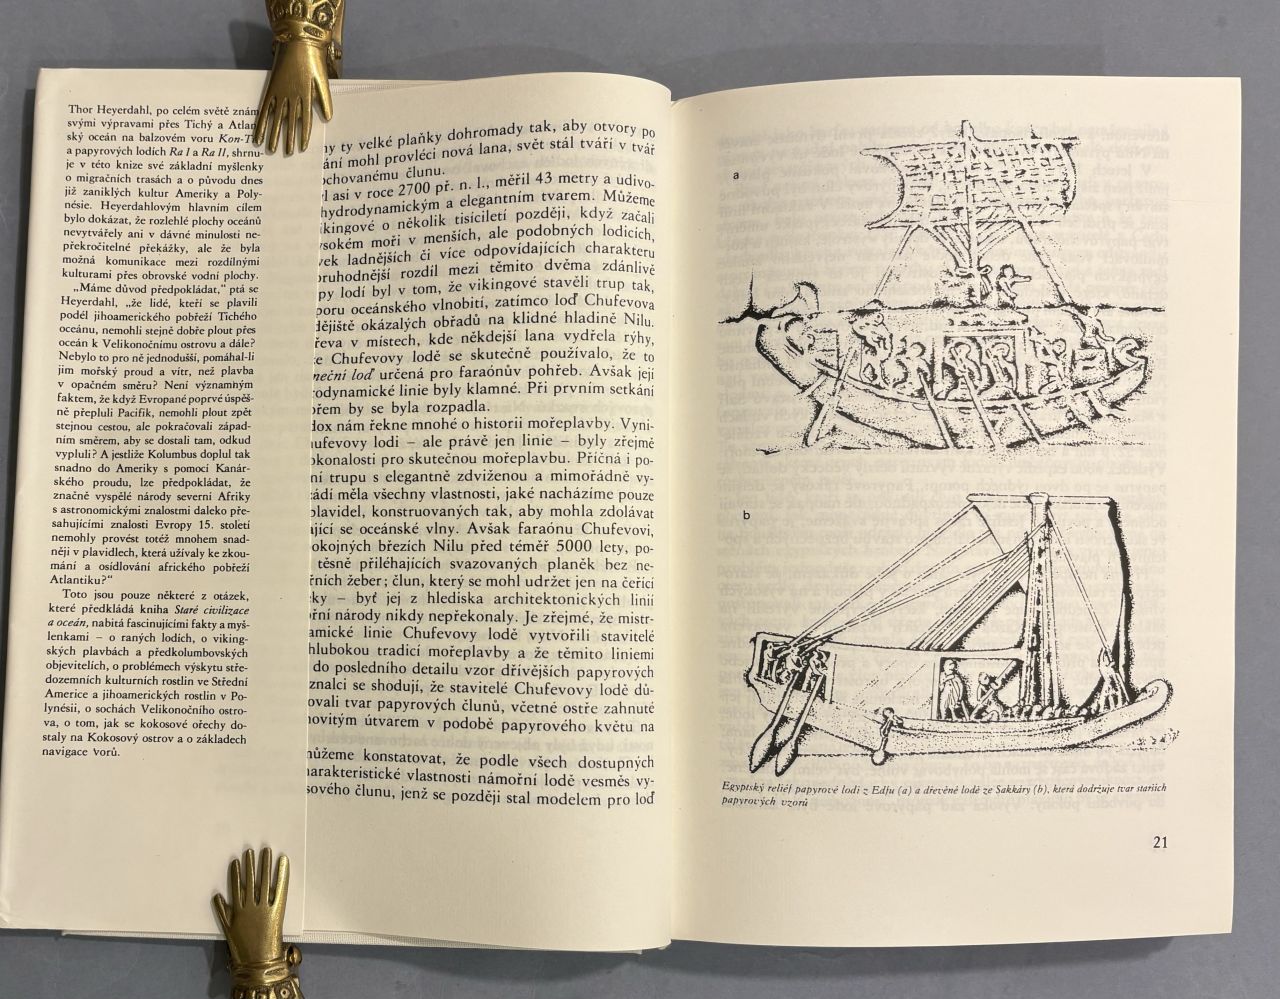 Thor Heyerdahl, po celém světě znám
svými výpravami přes Tichý a Atlan-
ský oceán na balzovém voru Kon-T
a papyrových lodích Ra I a Ra II, shrnu-
je v této knize své základní myšlenky
o migračních trasách a o původu dnes
již zaniklých kultur Ameriky a Poly-
nésie. Heyerdahlovým hlavním cílem
bylo dokázat, že rozlehlé plochy oceánů
nevytvářely ani v dávné minulosti ne-
překročitelné překážky, ale že byla
možná komunikace mezi rozdílnými
kulturami přes obrovské vodní plochy.
„Máme důvod předpokládat,“ ptá se
Heyerdahl, „že lidé, kteří se plavili
podél jihoamerického pobřeží Tichého
oceánu, nemohli stejně dobře plout přes
oceán k Velikonočnímu ostrovu a dále?
Nebylo to pro ně jednodušší, pomáhal-li
jim mořský proud a vítr, než plavba
v opačném směru? Není významným
faktem, že když Evropané poprvé úspěš-
ně přepluli Pacifik, nemohli plout zpět
stejnou cestou, ale pokračovali západ-
ním směrem, aby se dostali tam, odkud
vypluli? A jestliže Kolumbus doplul tak
snadno do Ameriky s pomocí Kanár-
ského proudu, lze předpokládat, že
značně vyspělé národy severní Afriky
s astronomickými znalostmi daleko pře-
sahujícími znalosti Evropy 15. století
nemohly provést totéž mnohem snad-
něji v plavidlech, která užívaly ke zkou-
mání a osídlování afrického pobřeží
Atlantiku?“
Toto jsou pouze některé z otázek,
které předkládá kniha Staré civilizace
a oceán, nabitá fascinujícími fakty a myš-
lenkami – o raných lodích, o viking-
ských plavbách a předkolumbovských
objevitelích, o problémech výskytu stře-
dozemních kulturních rostlin ve Střední
Americe a jihoamerických rostlin v Po-
lynésii, o sochách Velikonočního ostro-
va, o tom, jak se kokosové ořechy do-
staly na Kokosový ostrov a o základech
navigace vorů.
ny ty velké plaňky dohromady tak, aby otvory po
ání mohl provléci nová lana, svět stál tváří v tvář
ochovanému člunu.
yl asi v roce 2700 př. n. l., měřil 43 metry a udivo-
hydrodynamickým a elegantním tvarem. Můžeme
vikingové o několik tisíciletí později, když začali
vysokém moři v menších, ale podobných lodicích,
vek ladnějších či více odpovídajících charakteru
oruhodnější rozdíl mezi těmito dvěma zdánlivě
py lodí byl v tom, že vikingové stavěli trup tak,
poru oceánského vlnobití, zatímco loď Chufevova
dějiště okázalých obřadů na klidné hladině Nilu.
řeva v místech, kde někdejší lana vydřela rýhy,
že Chufevovy lodě se skutečně používalo, že to
neční loď určená pro faraónův pohřeb. Avšak její
rodynamické linie byly klamné. Při prvním setkání
ořem by se byla rozpadla.
dox nám řekne mnohé o historii mořeplavby. Vyni-
hufevovy lodi – ale právě jen linie – byly zřejmě
okonalosti pro skutečnou mořeplavbu. Příčná i po-
ní trupu s elegantně zdviženou a mimořádně vy-
ádí měla všechny vlastnosti, jaké nacházíme pouze
plavidel, konstruovaných tak, aby mohla zdolávat
ající se oceánské vlny. Avšak faraónu Chufevovi,
okojných březích Nilu před téměř 5000 lety, po-
těsně přiléhajících svazovaných planěk bez ne-
řních žeber; člun, který se mohl udržet jen na čeřící
ky – byť jej z hlediska architektonických linií
ořní národy nikdy nepřekonaly. Je zřejmé, že mistr-
amické linie Chufevovy lodě vytvořili stavitelé
hlubokou tradicí mořeplavby a že těmito liniemi
do posledního detailu vzor dřívějších papyrových
znalci se shodují, že stavitelé Chufevovy lodě dů-
ovali tvar papyrových člunů, včetně ostře zahnuté
novitým útvarem v podobě papyrového květu na
můžeme konstatovat, že podle všech dostupných
harakteristické vlastnosti námořní lodě vesměs vy-
sového člunu, jenž se později stal modelem pro loď
a
b
Egyptský reliéf papyrové lodi z Edfu (a) a dřevěné lodě ze Sakkáry (b), která dodržuje tvar starších
papyrových vzorů
21